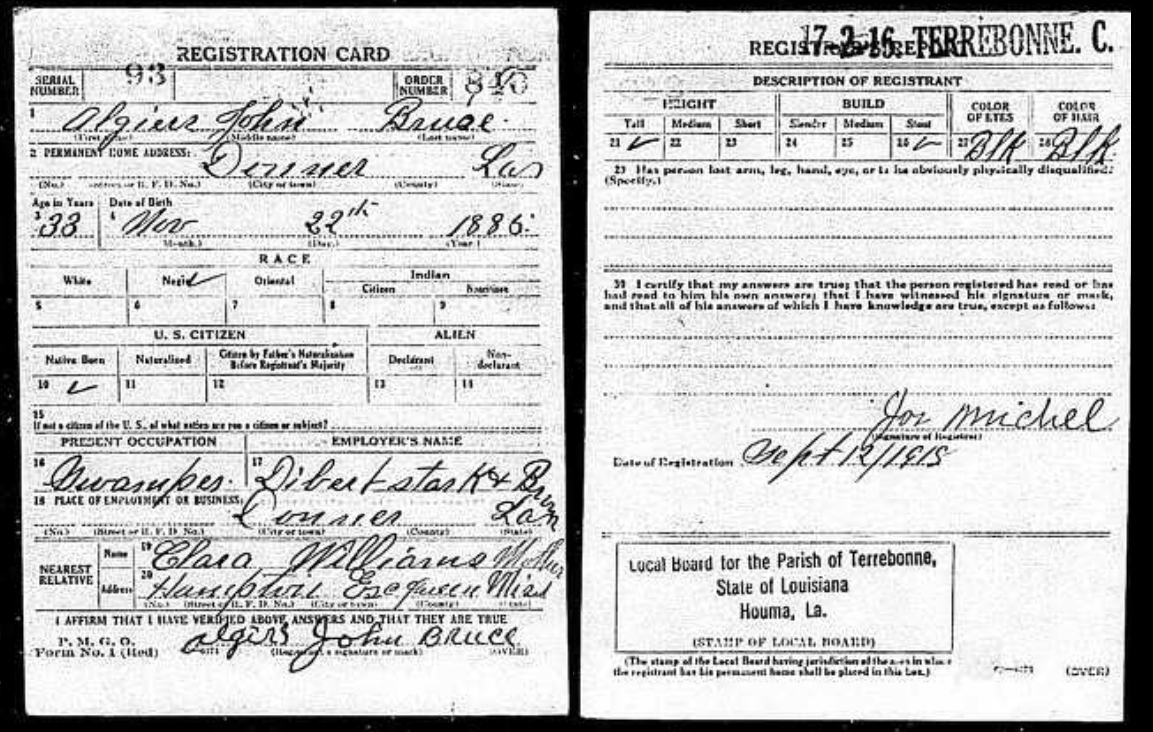 REGISTRATION CARD
SERIAL NUMBER 93
ORDER NUMBER
1 Algiers John Bruce.
(First name) (Middle name) (Last name)
2 PERMANENT HOME ADDRESS:
Donner Las
(No.) (Street or R. F. D. No.) (City or town) (County) (State)
Age in Years Date of Birth
3 33 4 Nov 22th 1886.
(Month.) (Day.) (Year.)
RACE
White Negro ✓ Oriental Indian
Citizen Noncitizen
5 6 7 8 9
U. S. CITIZEN ALIEN
Native Born Naturalized Citizen by Father's Naturalization Before Registrant's Majority Declarant Non-declarant
10 ✓ 11 12 13 14
15
If not a citizen of the U. S., of what nation are you a citizen or subject?
PRESENT OCCUPATION EMPLOYER'S NAME
16 Swamper. 17 Dibert stark &
18 PLACE OF EMPLOYMENT OR BUSINESS:
Donner Lan
(No.) (Street or R. F. D. No.) (City or town) (County) (State)
NEAREST RELATIVE
Name 19 Clara Williams Mother
Address 20 Hampton Miss
(No.) (Street or R. F. D. No.) (City or town) (County) (State)
I AFFIRM THAT I HAVE VERIFIED ABOVE ANSWERS AND THAT THEY ARE TRUE
P. M. G. O.
Form No. 1 (Red) algirs John BRUCE
(Registrant's signature or mark) (OVER)
REGISTRAR'S REPORT 17-2-16. TERREBONNE. C.
DESCRIPTION OF REGISTRANT
HEIGHT BUILD COLOR OF EYES COLOR OF HAIR
Tall Medium Short Slender Medium Stout
21 ✓ 22 23 24 25 26 ✓ 27 Blk 28 Blk
29 Has person lost arm, leg, hand, eye, or is he obviously physically disqualified?
(Specify.)
30 I certify that my answers are true; that the person registered has read or has
had read to him his own answers; that I have witnessed his signature or mark,
and that all of his answers of which I have knowledge are true, except as follows:
Jos Michel
(Signature of Registrar)
Date of Registration Sept 12/1918
Local Board for the Parish of Terrebonne,
State of Louisiana
Houma, La.
(STAMP OF LOCAL BOARD)
(The stamp of the Local Board having jurisdiction of the area in which
the registrant has his permanent home shall be placed in this box.)
(OVER)